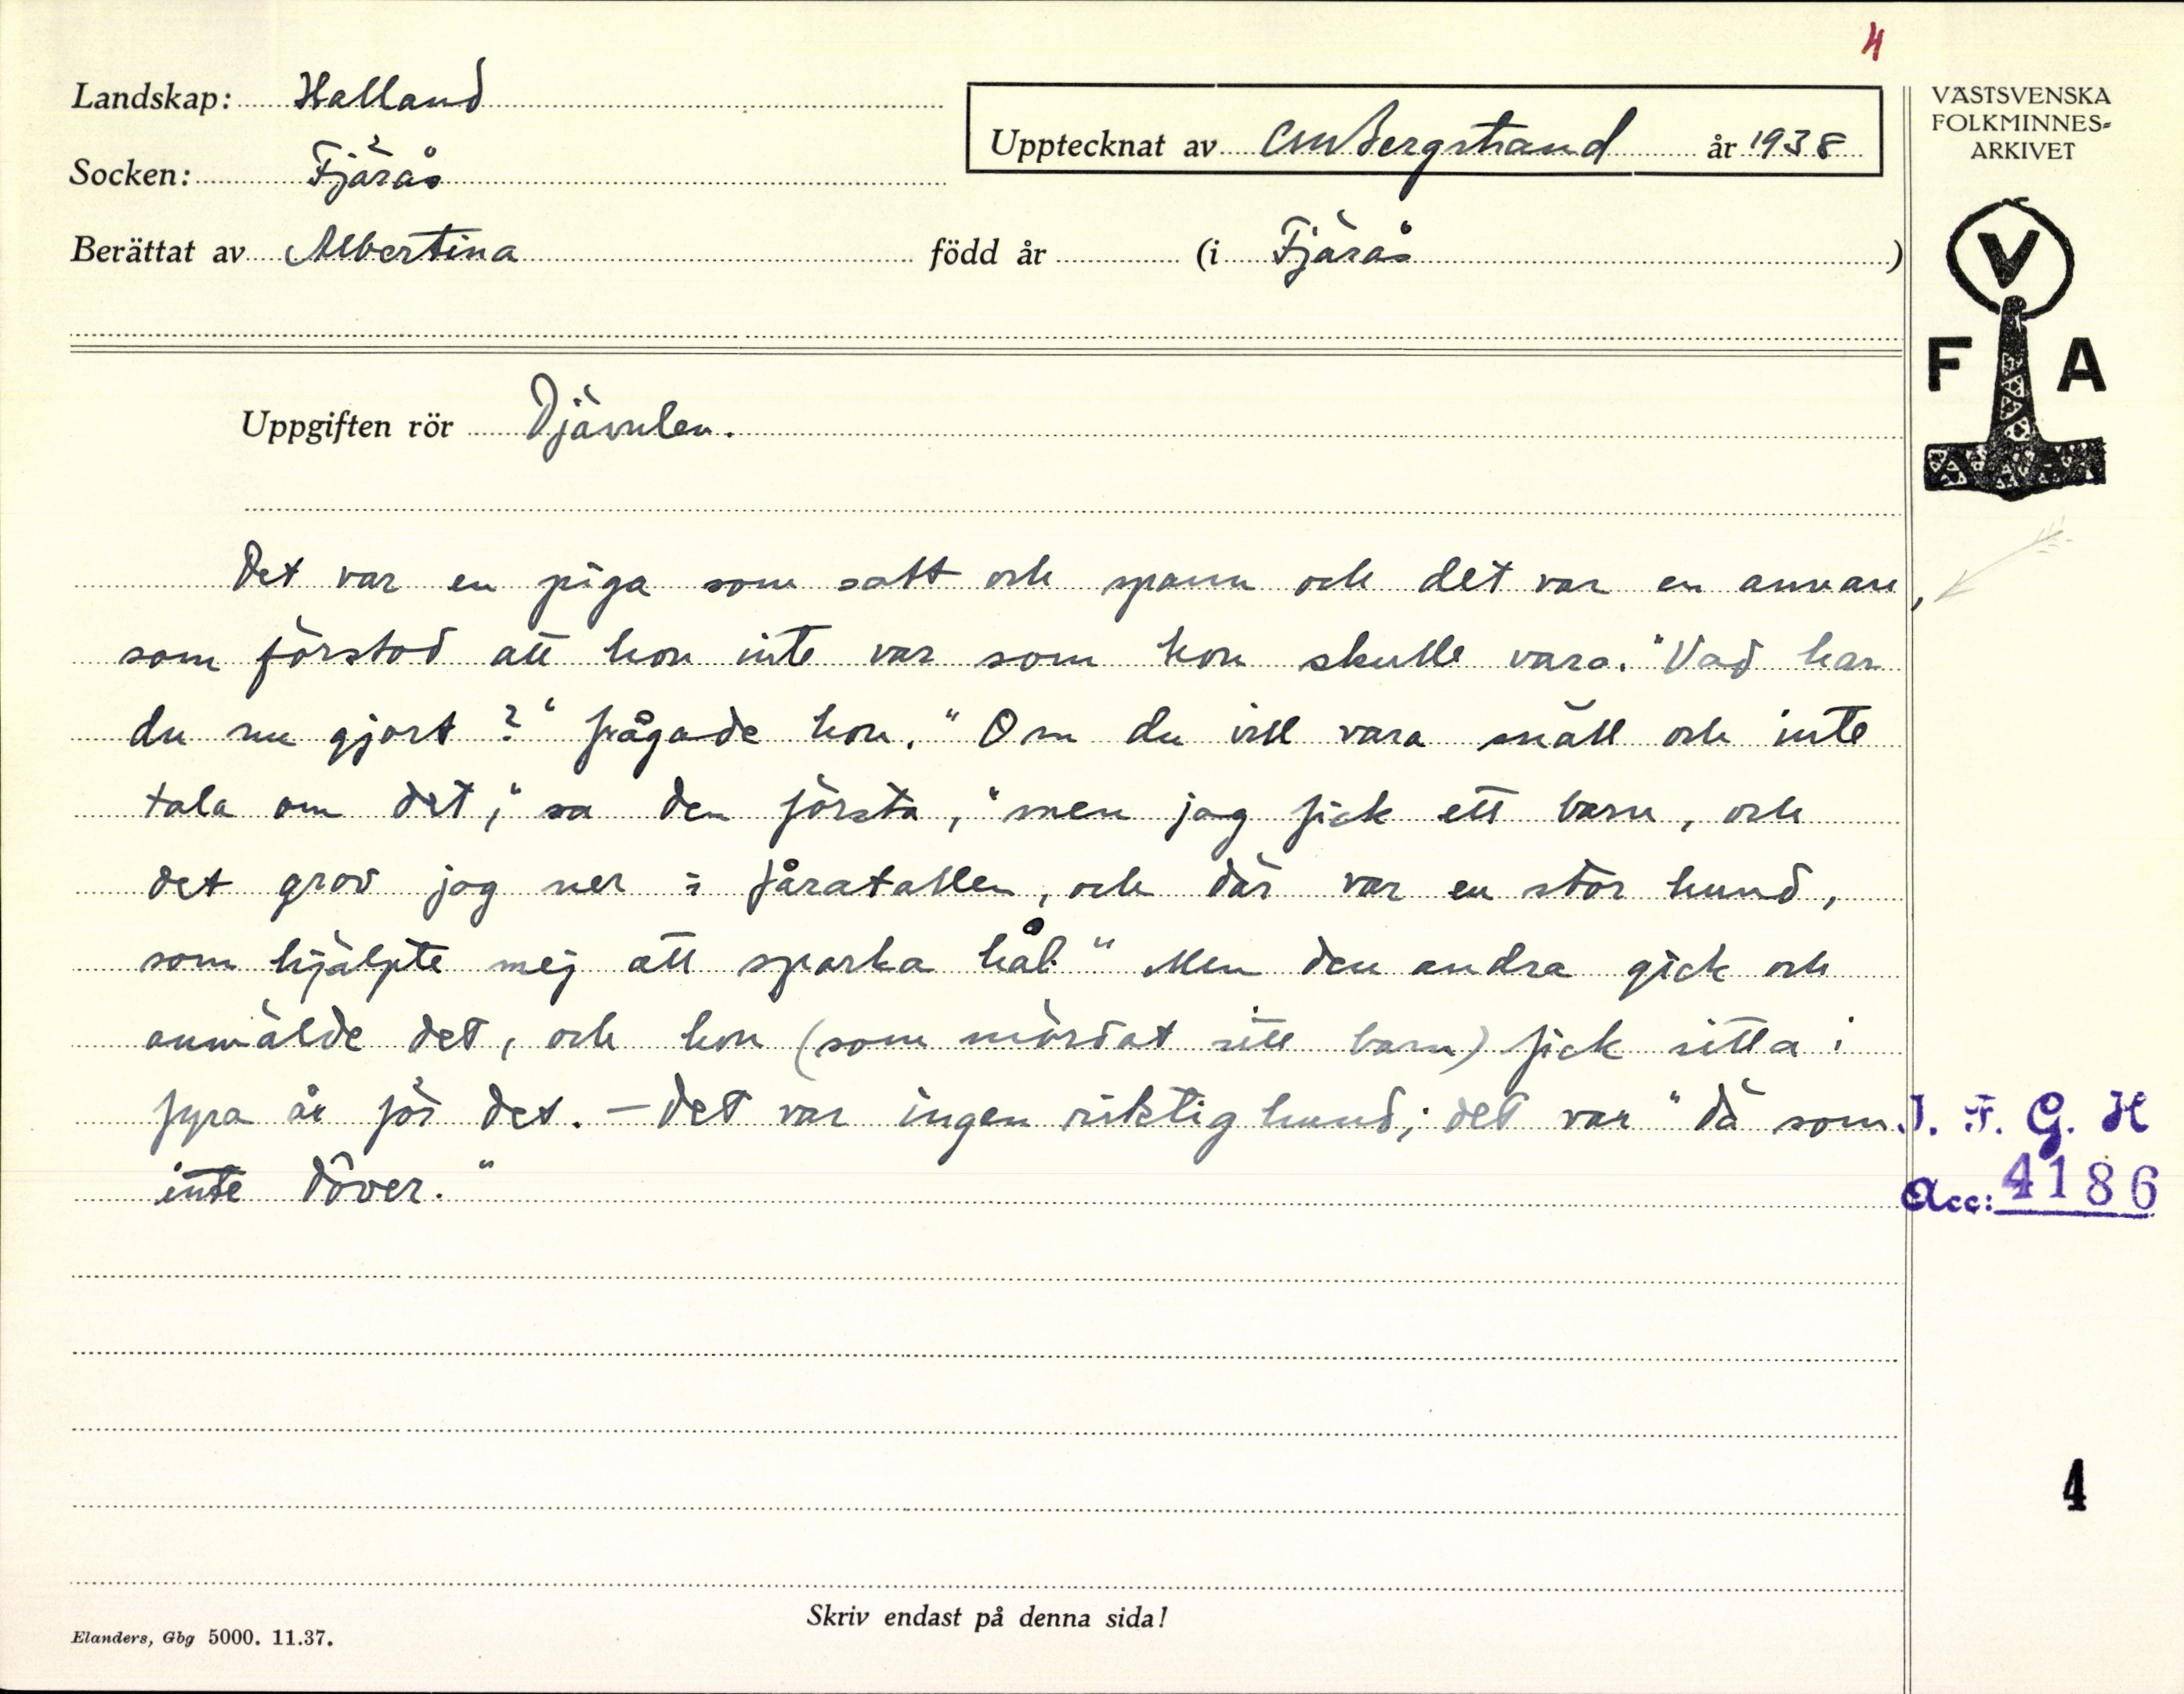 4
Landskap: Halland
Upptecknat av CMBergstrand år 1938
VÄSTSVENSKA
FOLKMINNES-
ARKIVET
Socken: Fjärås
Berättat av Albertina född år (i Fjärås )
V
F A
Uppgiften rör Djävulen.
Det var en piga som satt och spann och det var en annan,
som förstod att hon inte var som hon skulle vara. "Vad har
du nu gjort?" frågade hon. "Om du vill vara snäll och inte
tala om det," sa den första, "men jag fick ett barn, och
det grov jag ner i fåratallen, och där var en stor hund,
som hjälpte mej att sparka hål." Men den andra gick och
anmälde det, och hon (som mördat sitt barn) fick sitta i
fyra år för det. – Det var ingen riktig hund; det var "dä som
inte döver."
I. F. G. H
Acc: 4186
4
Skriv endast på denna sida!
Elanders, Gbg 5000. 11.37.